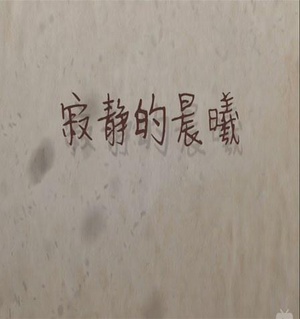 寂静的晨曦